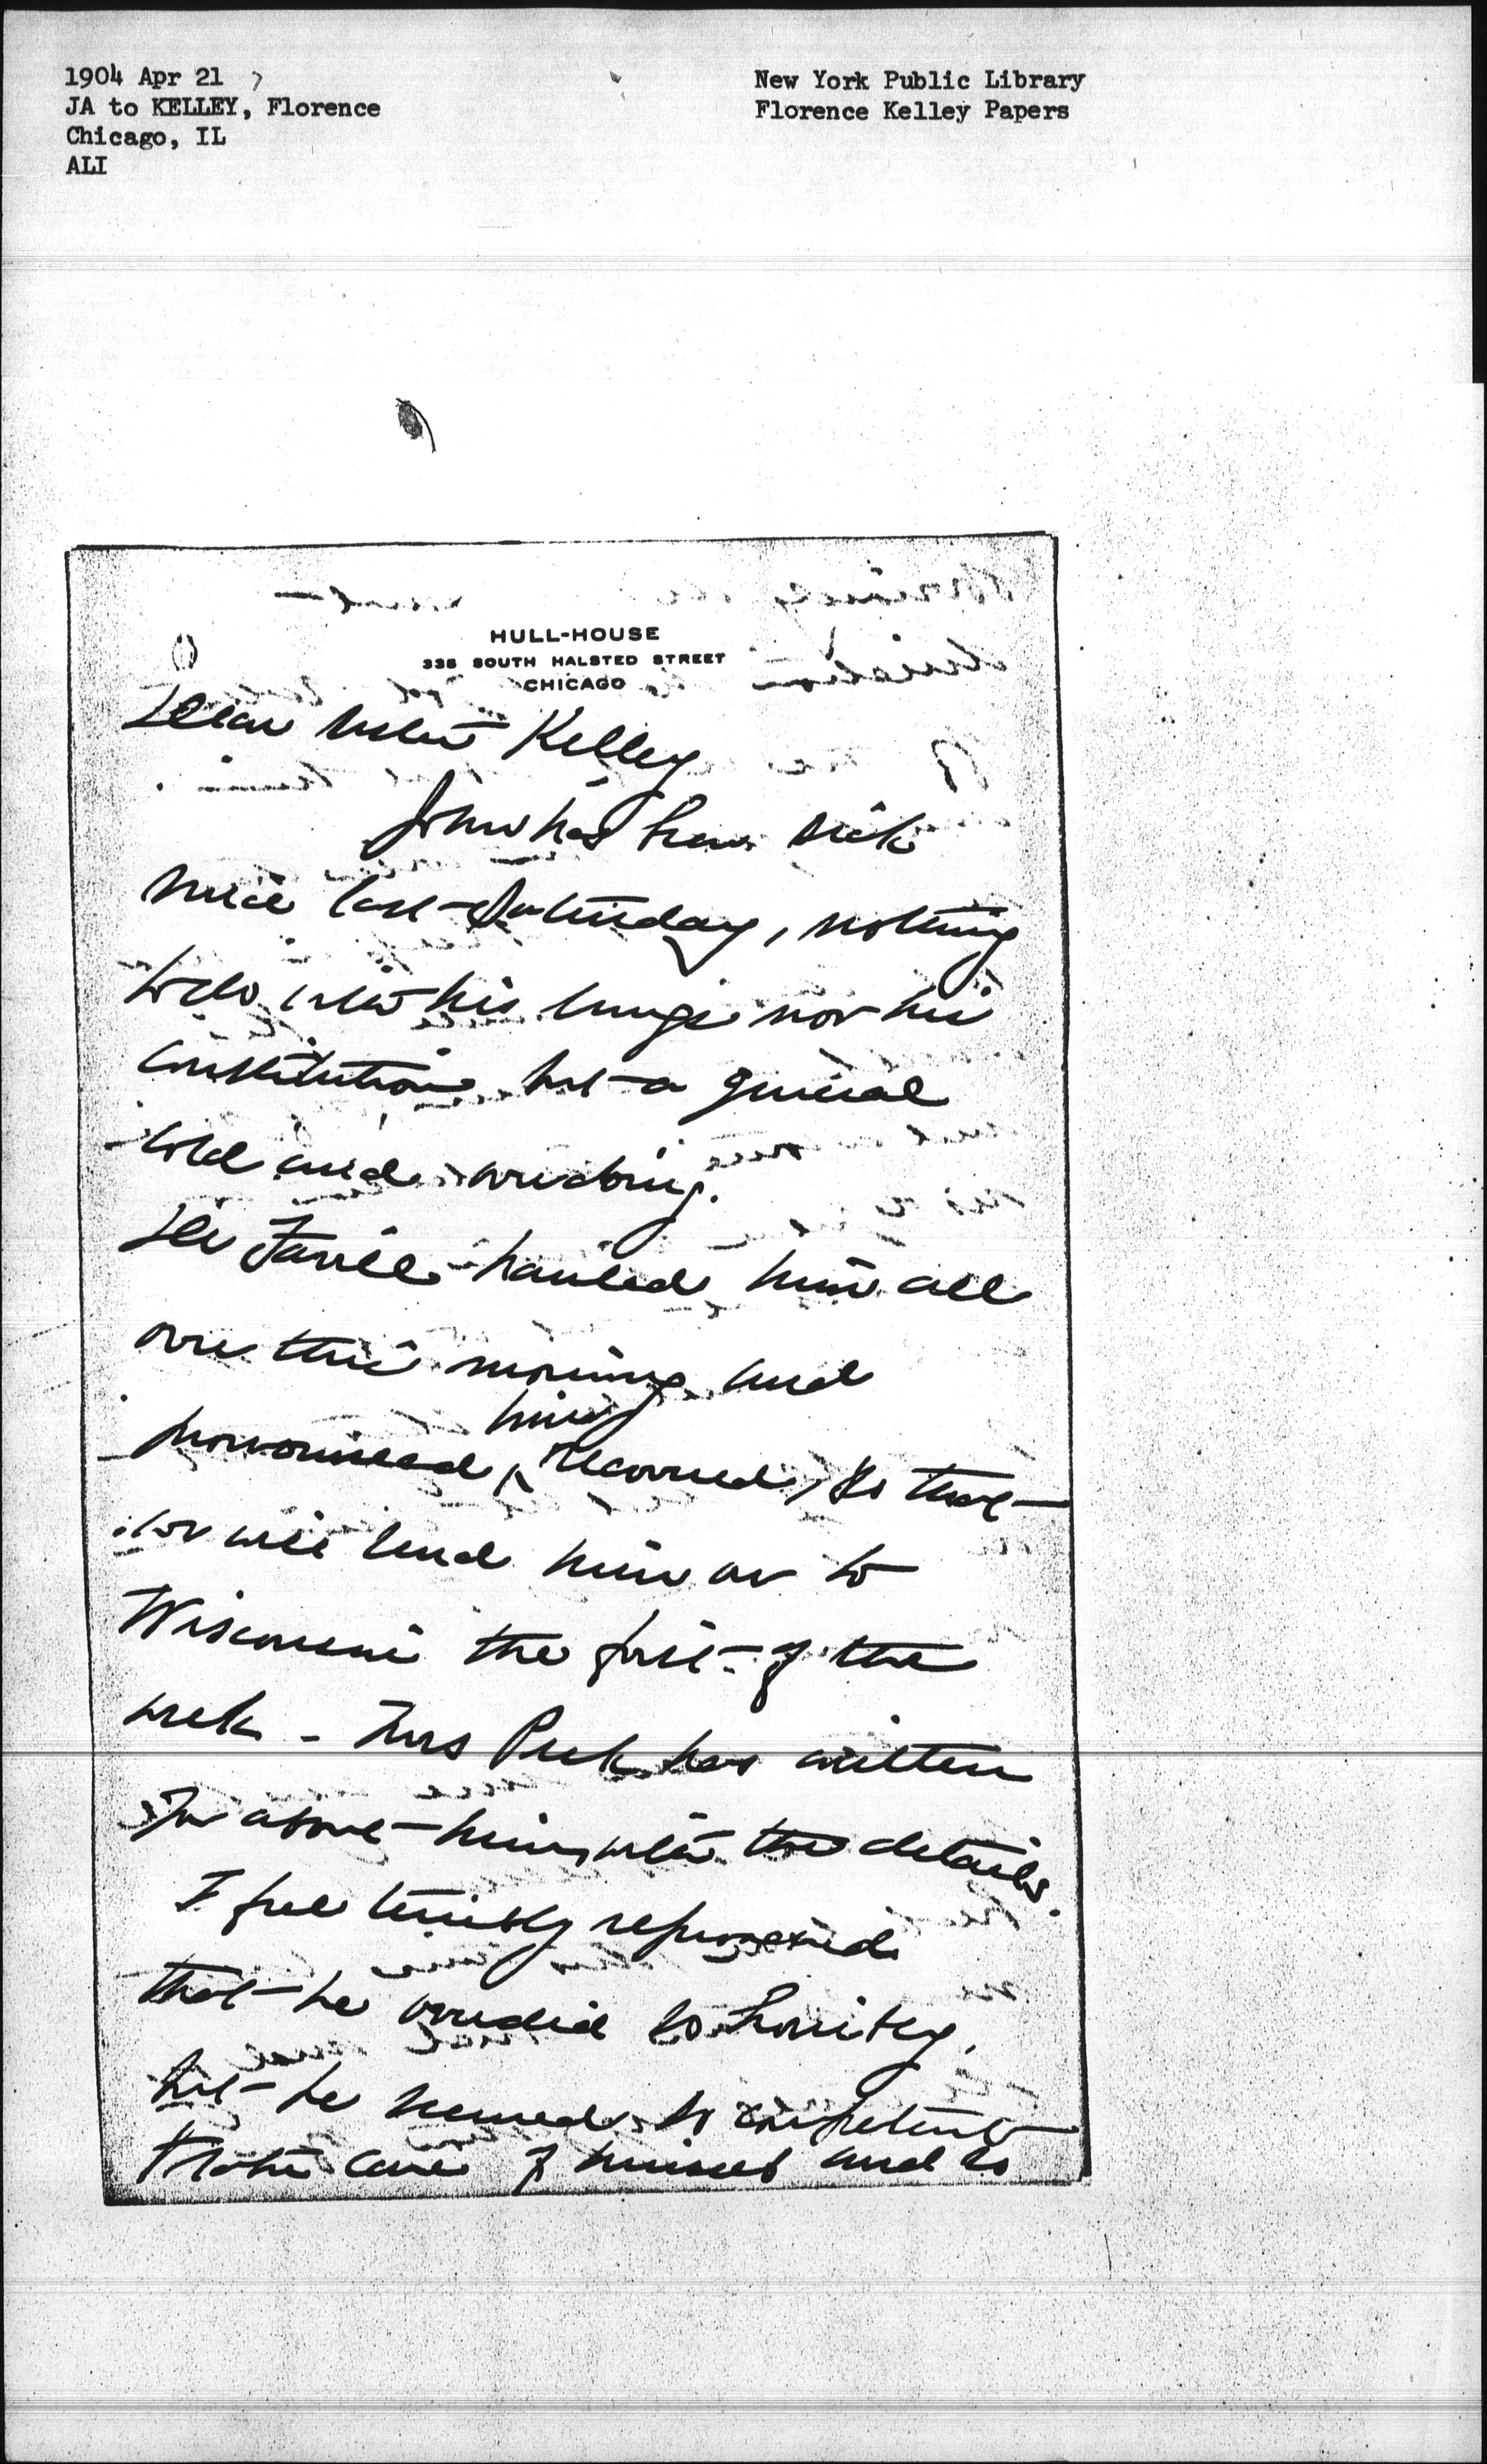 1904 Apr 21
JA to KELLEY, Florence
Chicago, IL
ALI
New York Public Library
Florence Kelley Papers
HULL-HOUSE
335 SOUTH HALSTED STREET
CHICAGO
Dear Sister Kelley
John has been sick
since last Saturday, nothing
to do with his lungs nor his
constitution but a general
cold and overdoing.
Dr Favill hauled him all
over this morning and
pronounced him recovered, so that
we will send him on to
Wisconsin the first of the
week - Mrs Peck has written
me about him, with the details.
I feel terribly reproached
that he overdid so horribly,
but he seemed so competent
to take care of himself and so